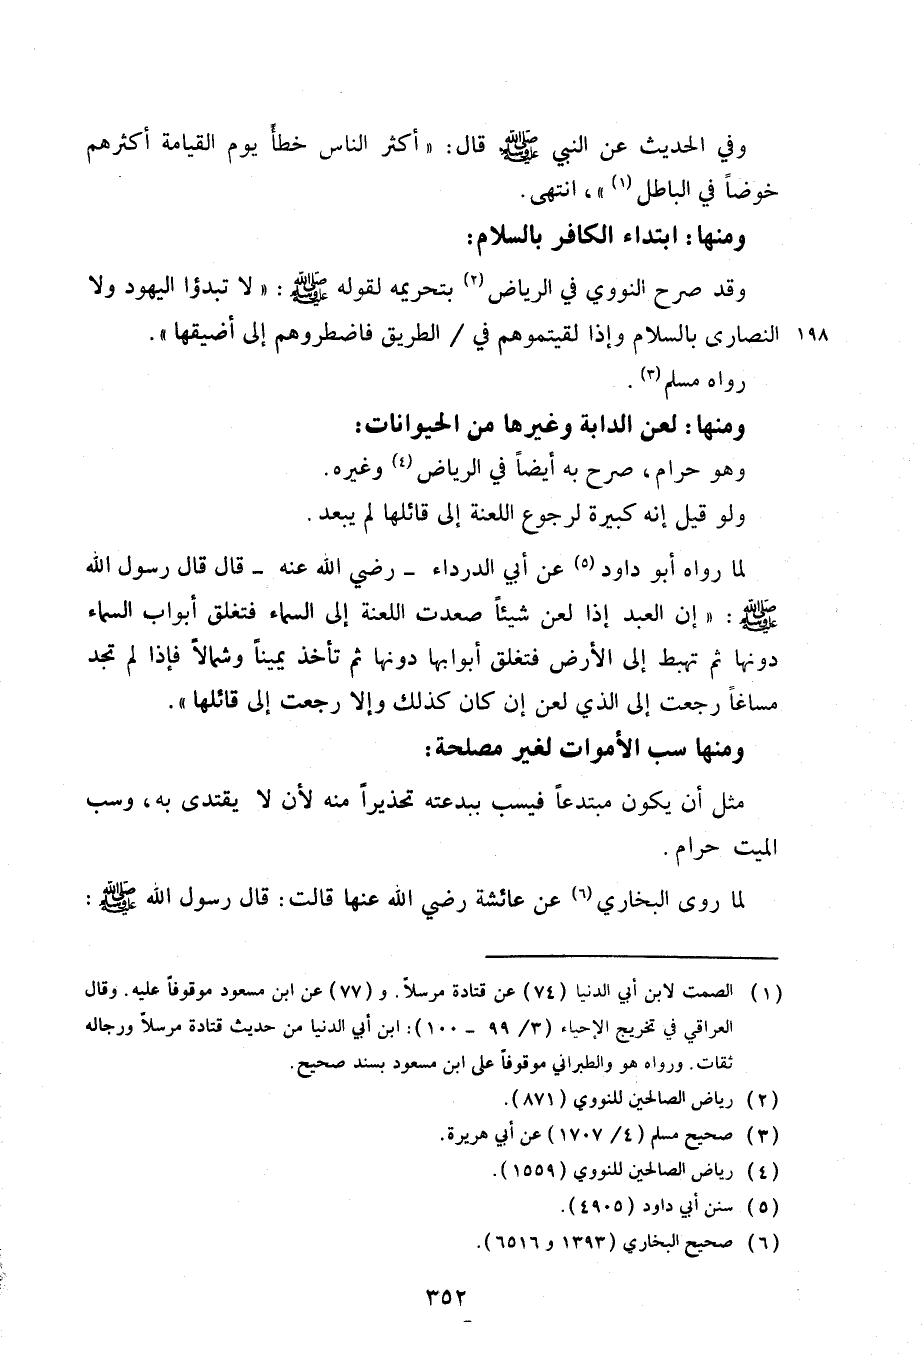 وفي الحديث عن النبي ﷺ قال: « أكثر الناس خطأً يوم القيامة أكثرهم
خوضاً في الباطل (١) »، انتهى.
ومنها: ابتداء الكافر بالسلام:
وقد صرح النووي في الرياض (٢) بتحريمه لقوله ﷺ : « لا تبدؤا اليهود ولا
١٩٨ النصارى بالسلام وإذا لقيتموهم في / الطريق فاضطروهم إلى أضيقها ».
رواه مسلم (٣) .
ومنها: لعن الدابة وغيرها من الحيوانات:
وهو حرام، صرح به أيضاً في الرياض (٤) وغيره.
ولو قيل إنه كبيرة لرجوع اللعنة إلى قائلها لم يبعد .
لما رواه أبو داود (٥) عن أبي الدرداء ـ رضي الله عنه ـ قال قال رسول الله
ﷺ : « إن العبد إذا لعن شيئاً صعدت اللعنة إلى السماء فتغلق أبواب السماء
دونها ثم تهبط إلى الأرض فتغلق أبوابها دونها ثم تأخذ يميناً وشمالاً فإذا لم تجد
مساغاً رجعت إلى الذي لعن إن كان كذلك وإلا رجعت إلى قائلها ».
ومنها سب الأموات لغير مصلحة:
مثل أن يكون مبتدعاً فيسب ببدعته تحذيراً منه لأن لا يقتدى به، وسب
الميت حرام .
لما روى البخاري (٦) عن عائشة رضي الله عنها قالت: قال رسول الله ﷺ :
(١) الصمت لابن أبي الدنيا (٧٤) عن قتادة مرسلاً. و (٧٧) عن ابن مسعود موقوفاً عليه. وقال
العراقي في تخريج الإحياء (٣/ ٩٩ ـ ١٠٠): ابن أبي الدنيا من حديث قتادة مرسلاً ورجاله
ثقات. ورواه هو والطبراني موقوفاً على ابن مسعود بسند صحيح.
(٢) رياض الصالحين للنووي (٨٧١).
(٣) صحيح مسلم (٤/ ١٧٠٧) عن أبي هريرة.
(٤) رياض الصالحين للنووي (١٥٥٩).
(٥) سنن أبي داود (٤٩٠٥).
(٦) صحيح البخاري (١٣٩٣ و ٦٥١٦).
٣٥٢